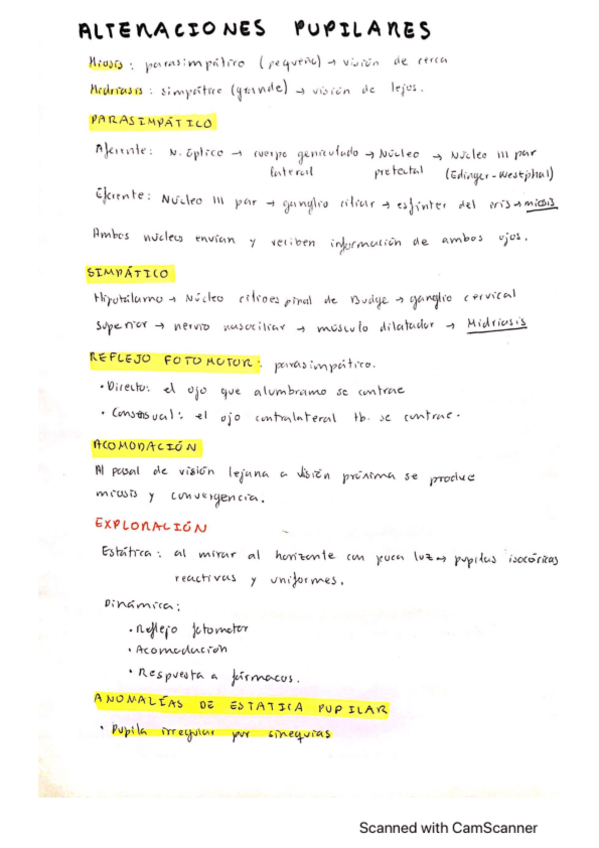 ALTERACIONES PUPILARES
Miosis: parasimpático (pequeña) → visión de cerca
Midriasis: simpático (grande) → visión de lejos.
PARASIMPÁTICO
Aferente: N. óptico → cuerpo geniculado → Núcleo → Núcleo III par
lateral pretectal (Edinger-Westphal)
Eferente: Núcleo III par → ganglio ciliar → esfínter del iris → miosis
Ambos núcleos envían y reciben información de ambos ojos.
SIMPÁTICO
Hipotálamo → Núcleo cilioespinal de Budge → ganglio cervical
superior → nervio nasociliar → músculo dilatador → Midriasis
REFLEJO FOTOMOTOR: parasimpático.
• Directo: el ojo que alumbramo se contrae
• Consensual: el ojo contralateral tb. se contrae.
ACOMODACIÓN
Al pasal de visión lejana a visión próxima se produce
miosis y convergencia.
EXPLORACIÓN
Estática: al mirar al horizonte con poca luz → pupilas isocóricas
reactivas y uniformes.
Dinámica:
• Reflejo fotomotor
• Acomodación
• Respuesta a fármacos.
ANOMALÍAS DE ESTATICA PUPILAR
• Pupila irregular por sinequias
Scanned with CamScanner